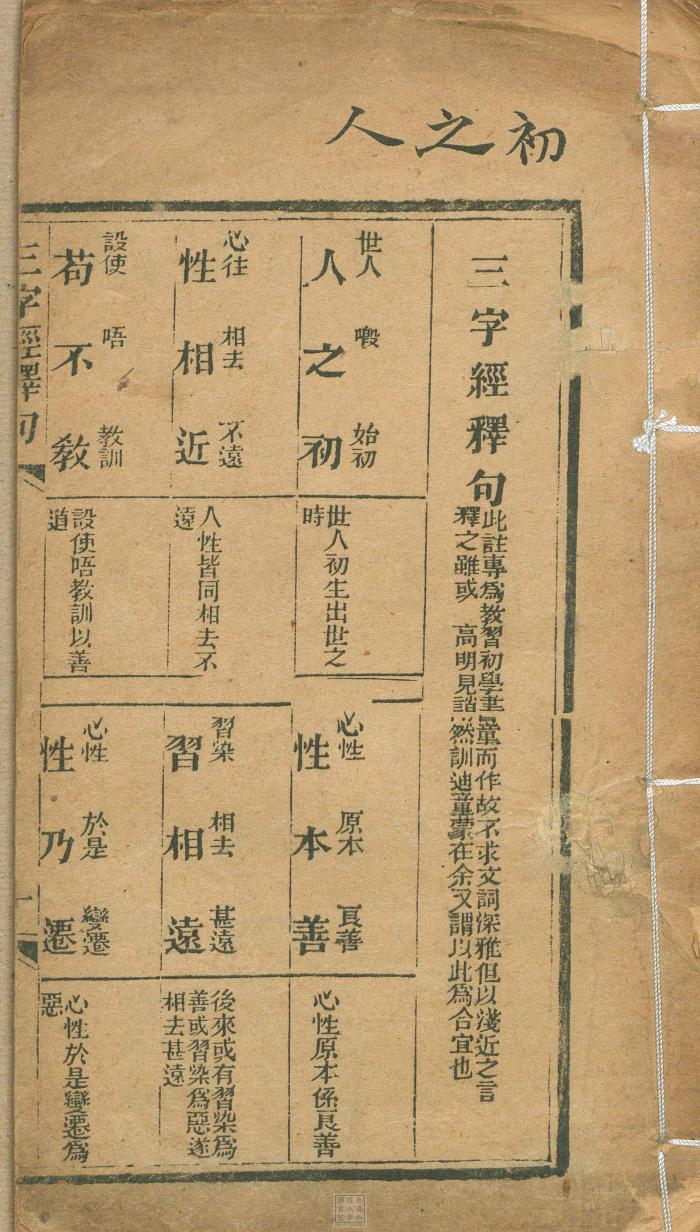 人之初
三字經釋句
此註專為教習初學書童而作故不求文詞深雅但以淺近之言
釋之雖或高明見誚然訓迪童蒙在余又謂以此為合宜也
世人 嘅 始初
人之初
世人初生出世之
時
心性 原本 良善
性本善
心性原本係良善
心性 相去 不遠
性相近
人性皆同相去不
遠
習染 相去 甚遠
習相遠
後來或有習染為
善或習染為惡遂
相去甚遠
設使 唔 教訓
苟不教
設使唔教訓以善
道
心性 於是 變遷
性乃遷
心性於是變遷為
惡
三字經釋句